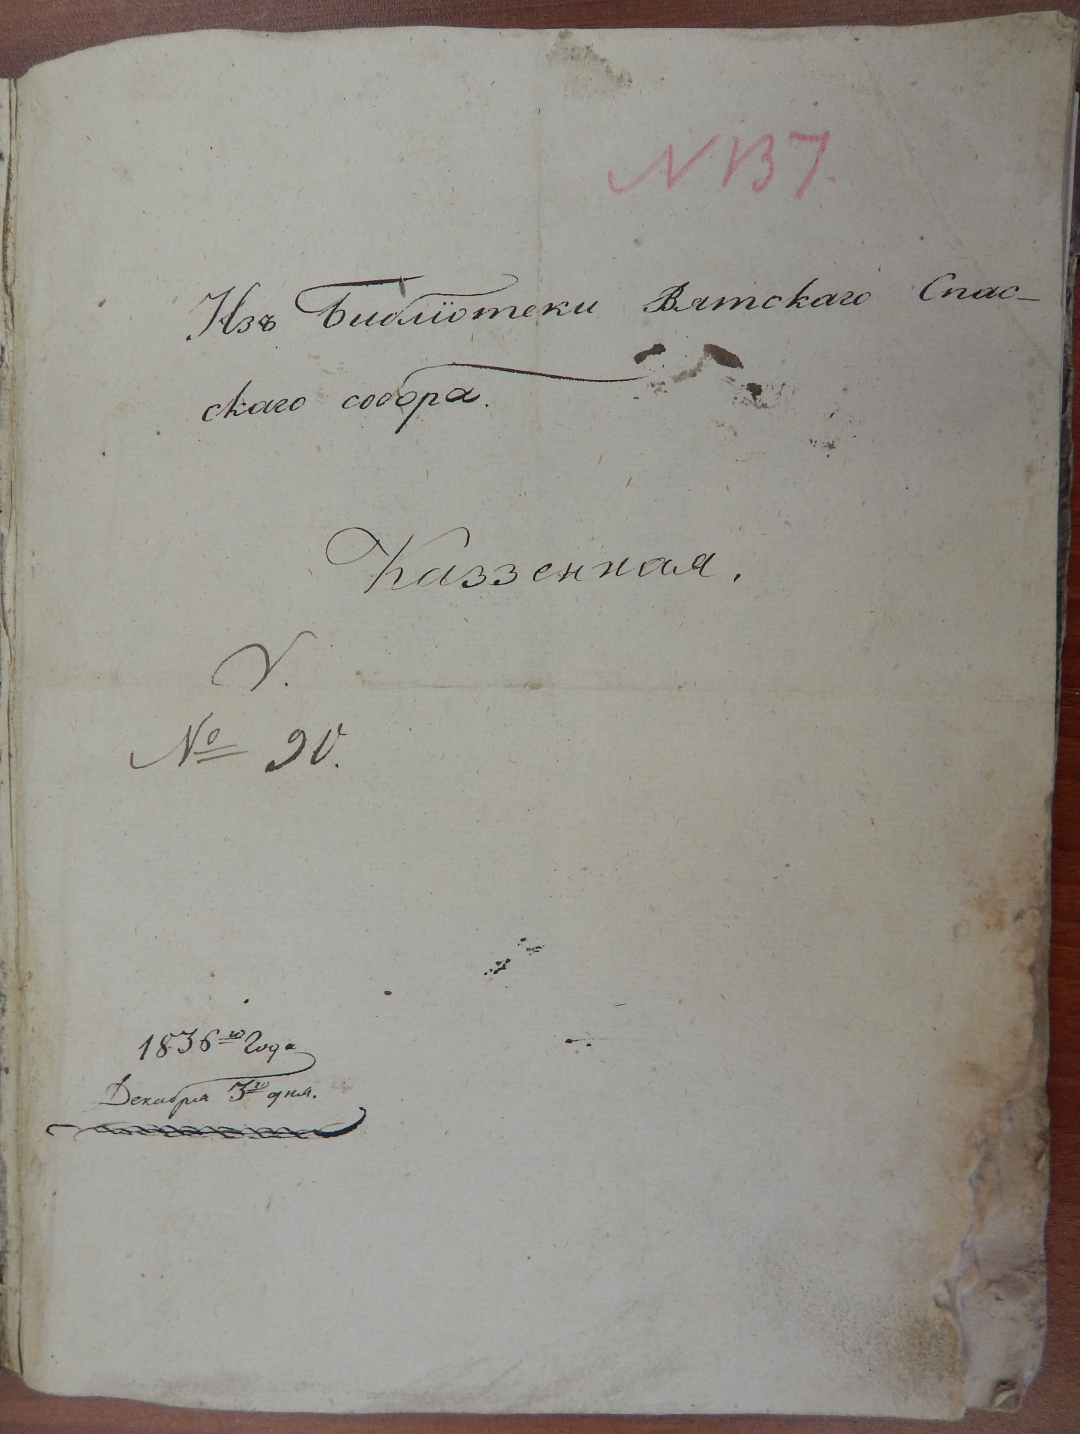 N 137.
Изъ Библіотеки Вятскаго Спас-
скаго собора.
Каззенная.
V.
№ 90.
1836го Года
Декабря 3го дня.